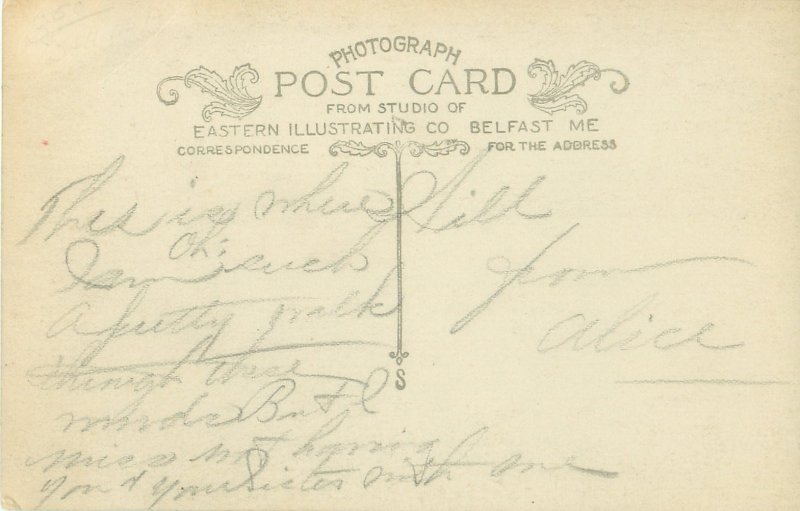 PHOTOGRAPH
POST CARD
FROM STUDIO OF
EASTERN ILLUSTRATING CO BELFAST ME
CORRESPONDENCE FOR THE ADDRESS
This is where
Oh;
I am such
A pretty walk
through these
woods But I
Miss not having
you & your sister with me
from
Alice
S